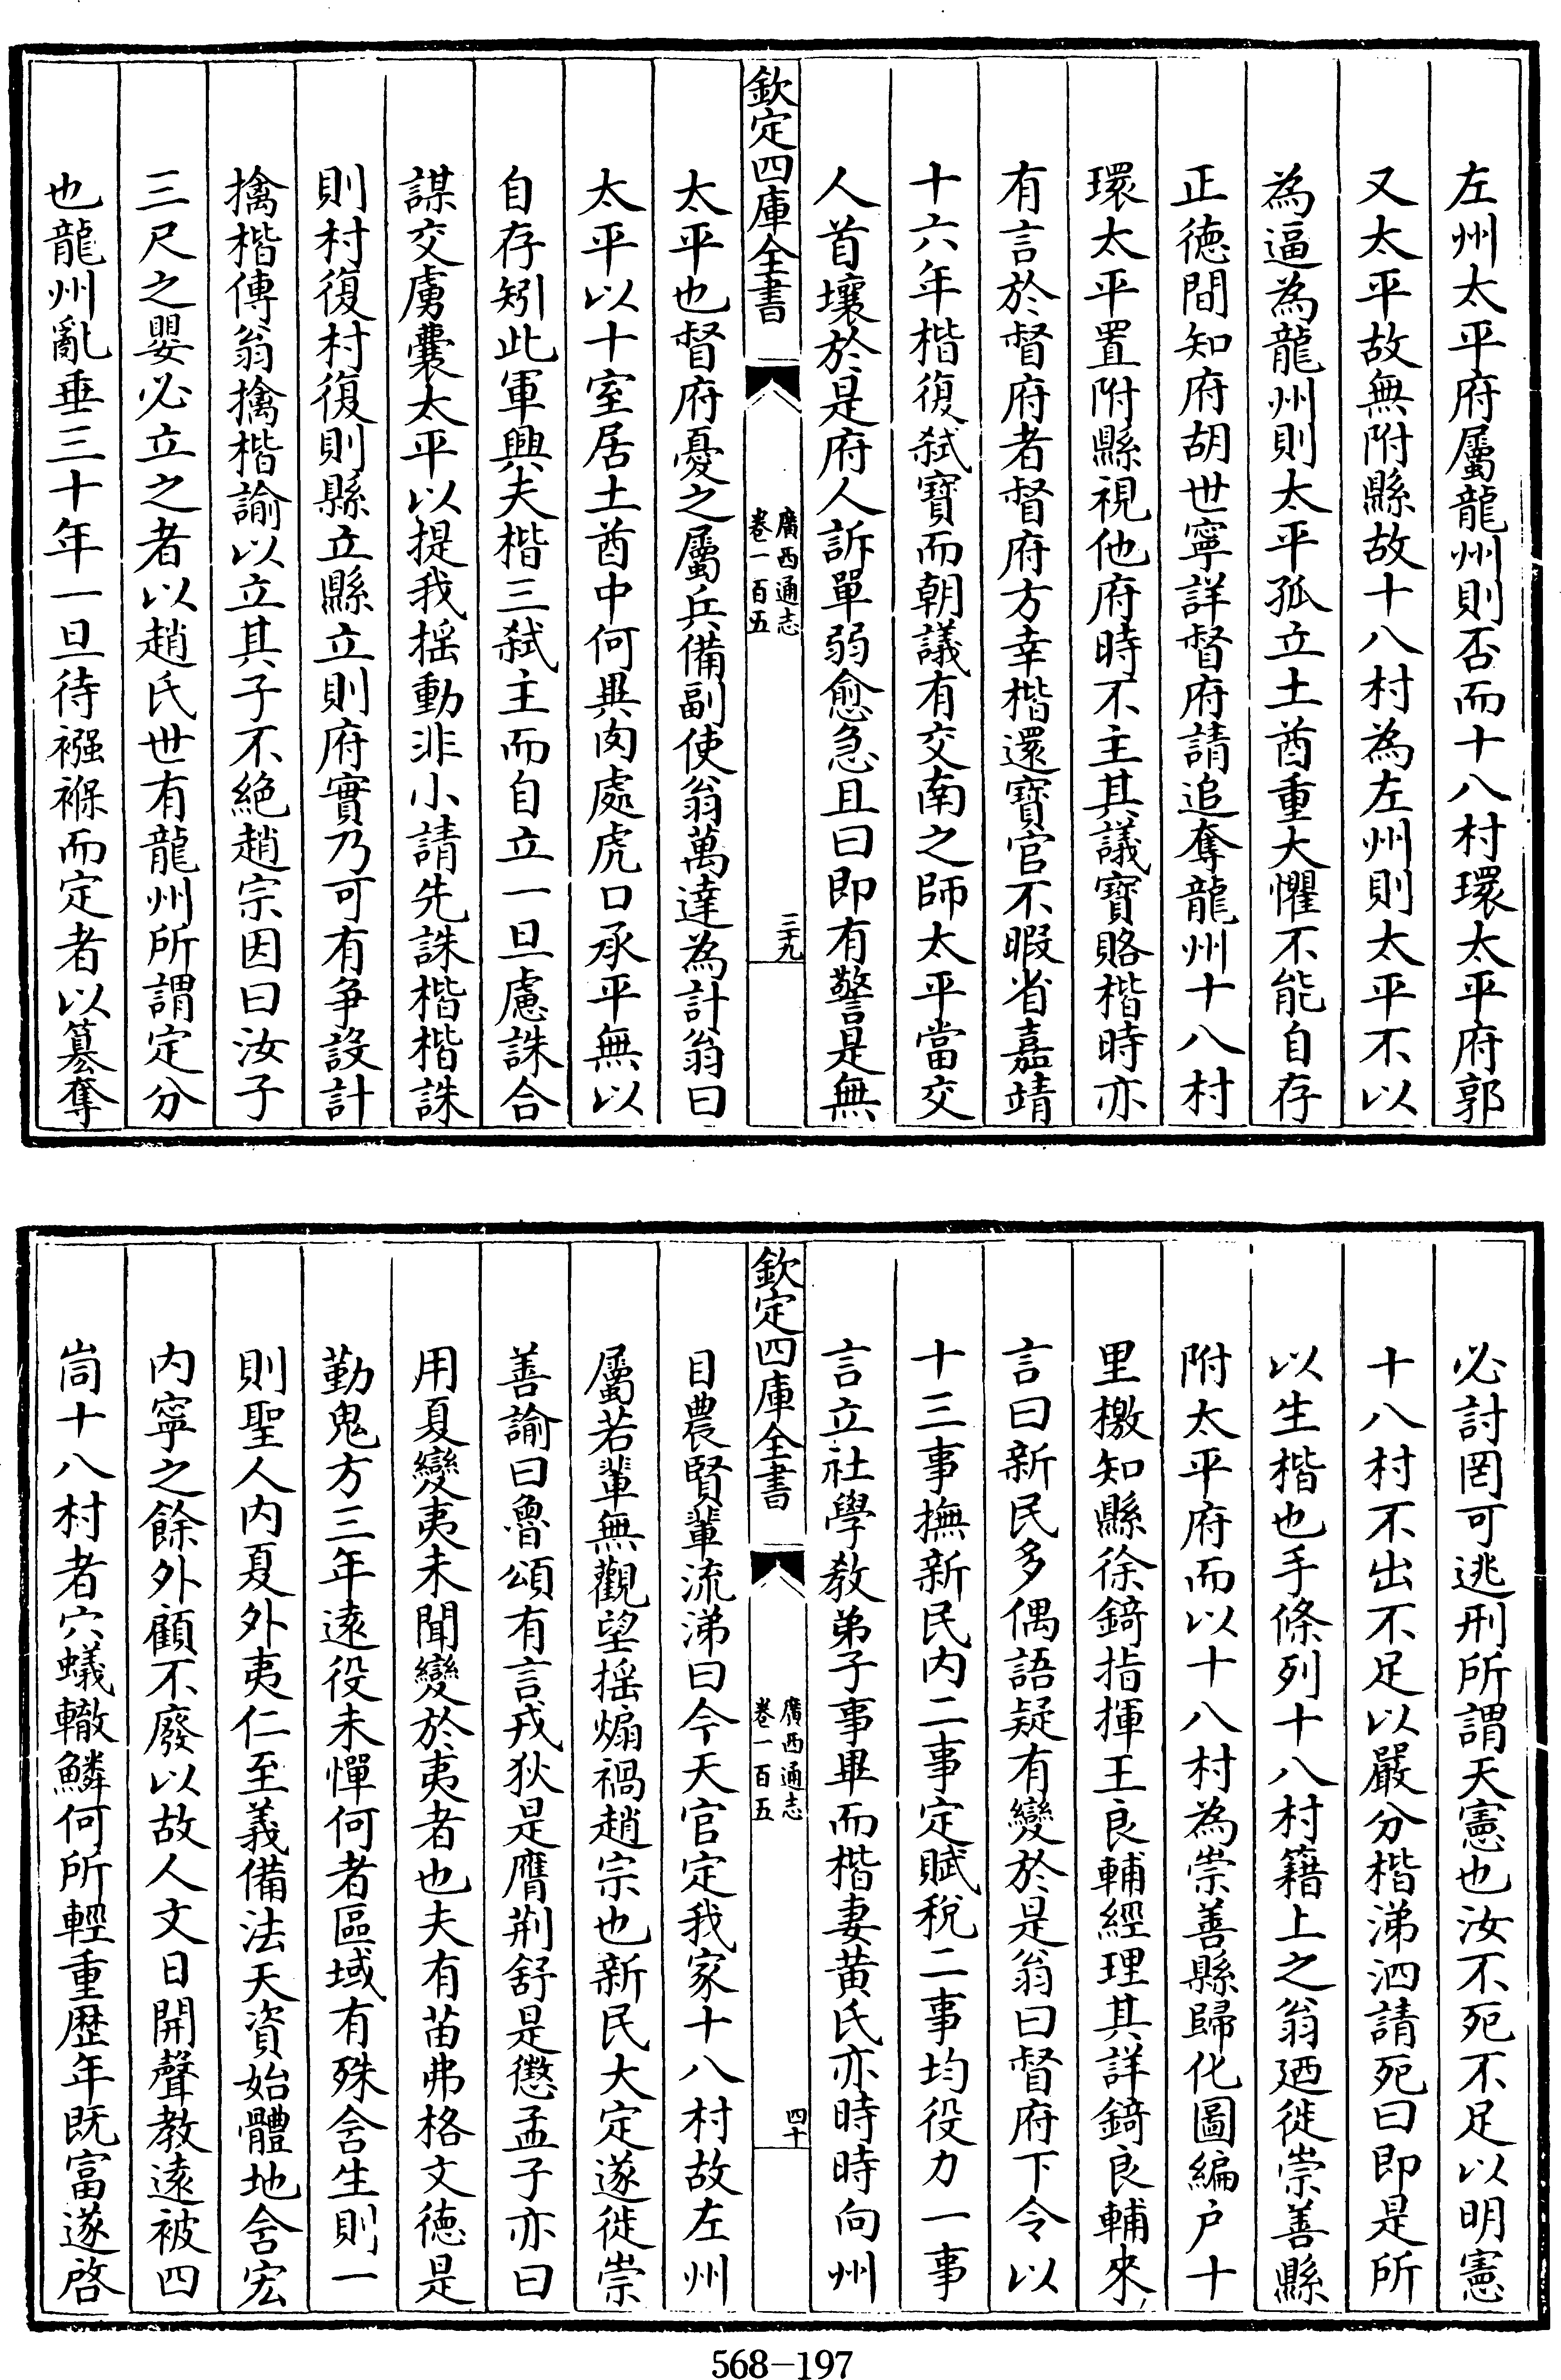 左州太平府屬龍州則否而十八村環太平府郭
又太平故無附縣故十八村為左州則太平不以
為逼為龍州則太平孤立土酋重大懼不能自存
正德間知府胡世寧詳督府請追奪龍州十八村
環太平置附縣視他府時不主其議寶賂楷時亦
有言於督府者督府方幸楷還寶官不暇省嘉靖
十六年楷復弒寶而朝議有交南之師太平當交
人首壤於是府人訴單弱愈急且曰即有警是無
欽定四庫全書
廣西通志
卷一百五
三十九
太平也督府憂之屬兵備副使翁萬達為計翁曰
太平以十室居土酋中何異肉處虎口承平無以
自存矧此軍興夫楷三弒主而自立一旦慮誅合
謀交虜囊太平以提我搖動非小請先誅楷楷誅
則村復村復則縣立縣立則府實乃可有爭設計
擒楷傳翁擒楷諭以立其子不絕趙宗因曰汝子
三尺之嬰必立之者以趙氏世有龍州所謂定分
也龍州亂垂三十年一旦待襁褓而定者以簒奪
必討罔可逃刑所謂天憲也汝不死不足以明憲
十八村不出不足以嚴分楷涕泗請死曰即是所
以生楷也手條列十八村籍上之翁廼徙崇善縣
附太平府而以十八村為崇善縣歸化圖編户十
里檄知縣徐錡指揮王良輔經理其詳錡良輔來
言曰新民多偶語疑有變於是翁曰督府下令以
十三事撫新民内二事定賦稅二事均役力一事
言立社學教弟子事畢而楷妻黃氏亦時時向州
欽定四庫全書
廣西通志
卷一百五
四十
目農賢輩流涕曰今天官定我家十八村故左州
屬若輩無觀望搖煽禍趙宗也新民大定遂徙崇
善諭曰魯頌有言戎狄是膺荆舒是懲孟子亦曰
用夏變夷未聞變於夷者也夫有苗弗格文德是
勤鬼方三年遠役未憚何者區域有殊含生則一
則聖人内夏外夷仁至義備法天資始體地含宏
内寧之餘外顧不廢以故人文日開聲教遠被四
峝十八村者穴蟻轍鱗何所輕重歴年既富遂啓
568-197